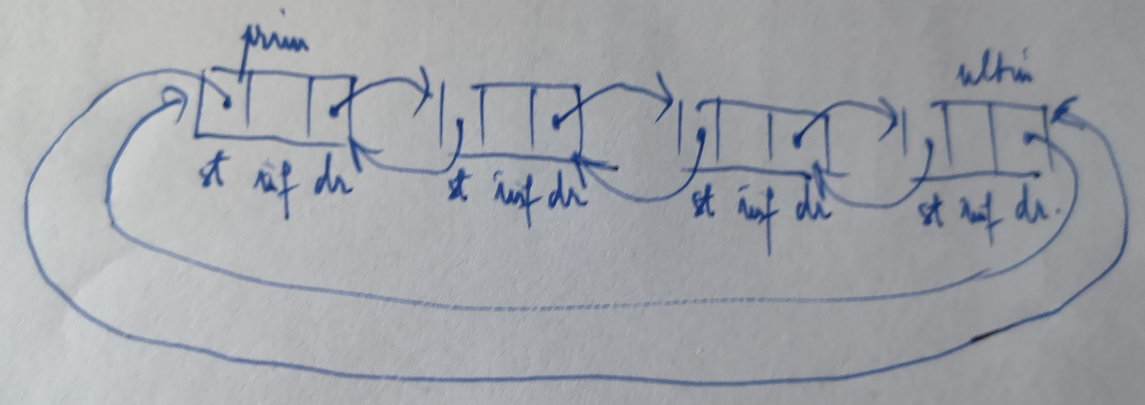 prim
ultim
st inf dr
st inf dr
st inf dr
st inf dr.